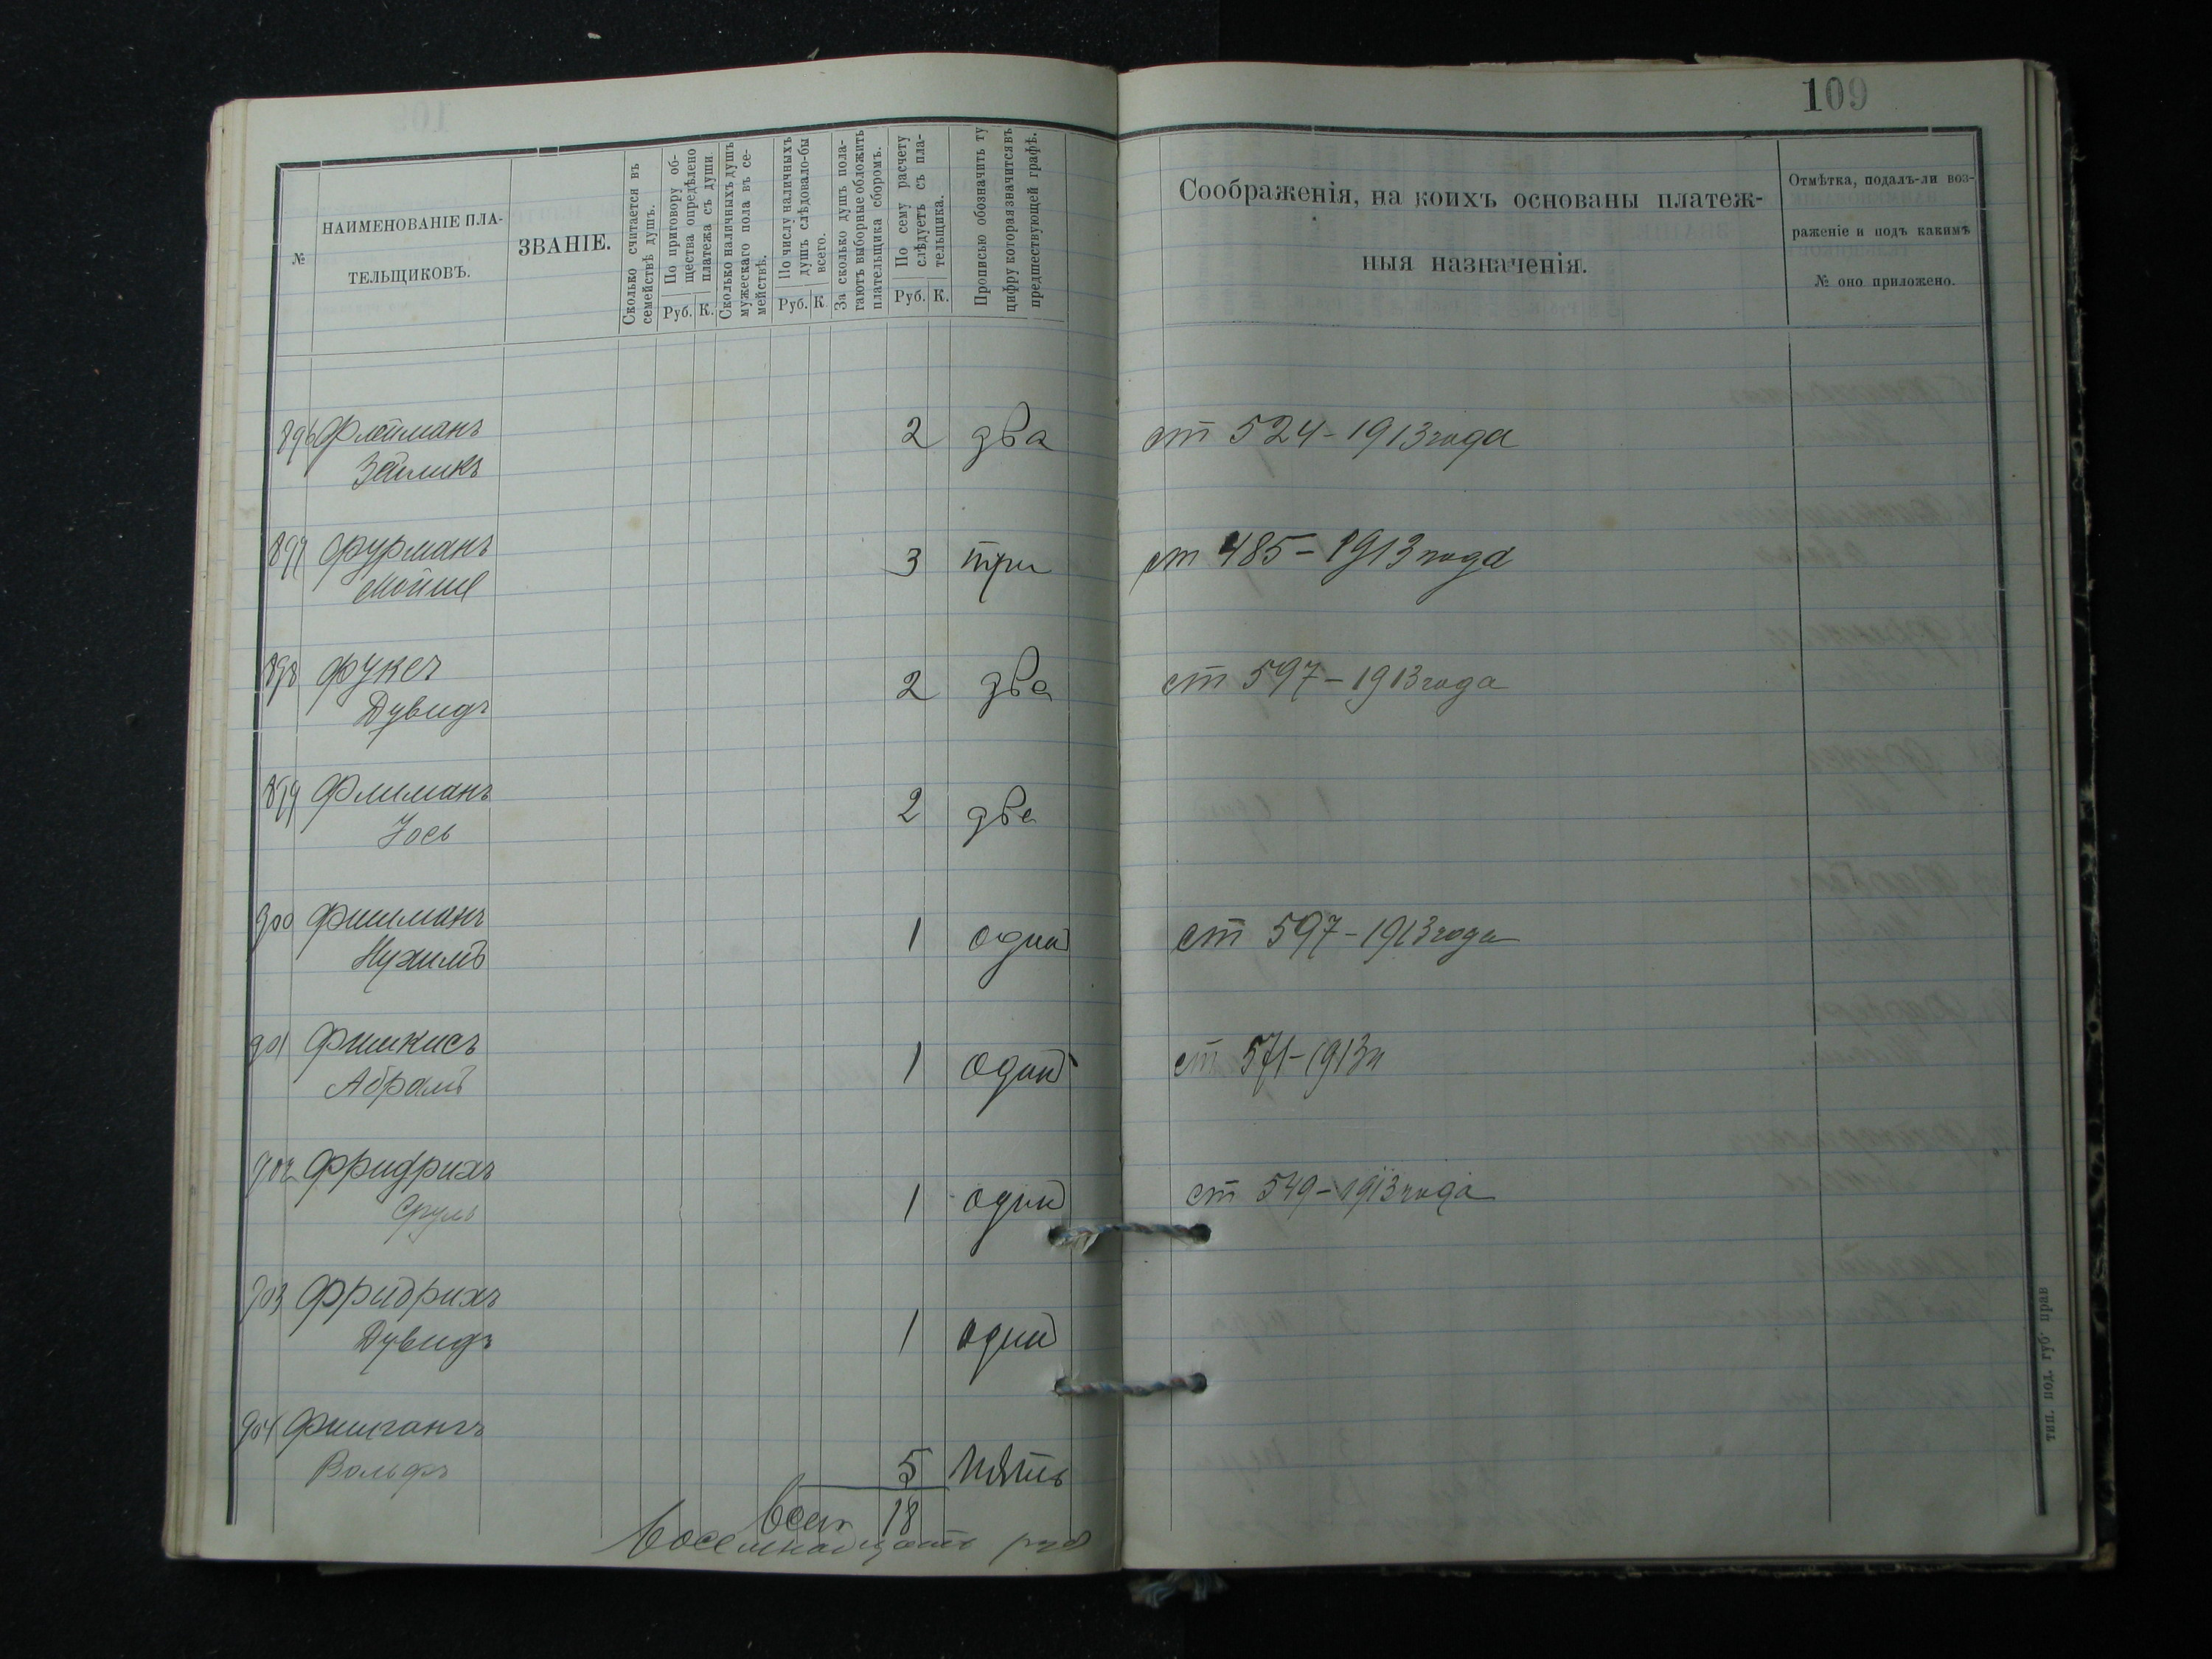 109
№
НАИМЕНОВАНІЕ ПЛА-
ТЕЛЬЩИКОВЪ.
ЗВАНІЕ.
Сколько считается въ
семействѣ душъ.
По приговору об-
щества опредѣлено
платежа съ души.
Руб. К.
Сколько наличныхъ душъ
мужескаго пола въ се-
мействѣ.
По числу наличныхъ
душъ слѣдовало-бы
всего.
Руб. К
За сколько душъ пола-
гаютъ выборные обложить
плательщика сборомъ.
По сему расчету
слѣдуетъ съ пла-
тельщика.
Руб. К.
Прописью обозначить ту
цифру которая значится въ
предшествующей графѣ.
Соображенія, на коихъ основаны платеж-
ныя назначенія.
Отмѣтка, подалъ-ли воз-
раженіе и подъ какимъ
№ оно приложено.
896 Флейманъ 2 два ст 524-1913 года
Зейликъ
897 Фурманъ 3 три ст 485-1913 года
Мойше
898 Фуксъ 2 два ст 597-1913 года
Дувидъ
899 Флиманъ 2 два
Іось
900 Фишманъ 1 один ст 597-1913 года
Нухимъ
901 Фишкисъ 1 один ст 571-1913 г
Абрамъ
902 Фридрихъ 1 один ст 549-1913 года
Сруль
903 Фридрихъ 1 один
Дувидъ
904 Фишгангъ
Вольфъ 5 пять
Всего 18
Восемнадцать руб
тип. под. губ. прав